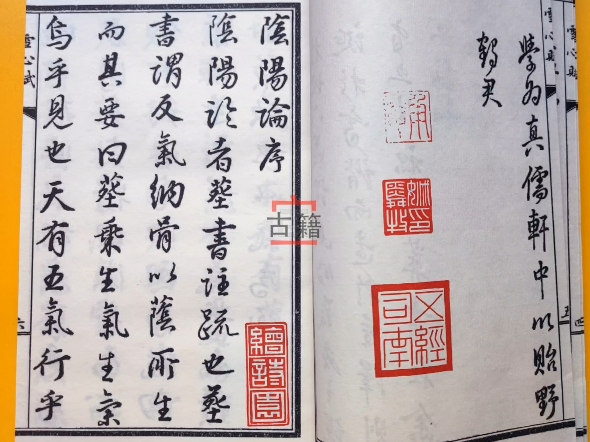 雪心賦
五
學為真儒軒中以貽野
鶴君
五經司南
古籍
陰陽論序
陰陽論者葬書註疏也葬
書謂反氣納骨以蔭所生
而其要曰葬乘生氣生氣
烏乎見也天有五氣行乎
雪心賦
六